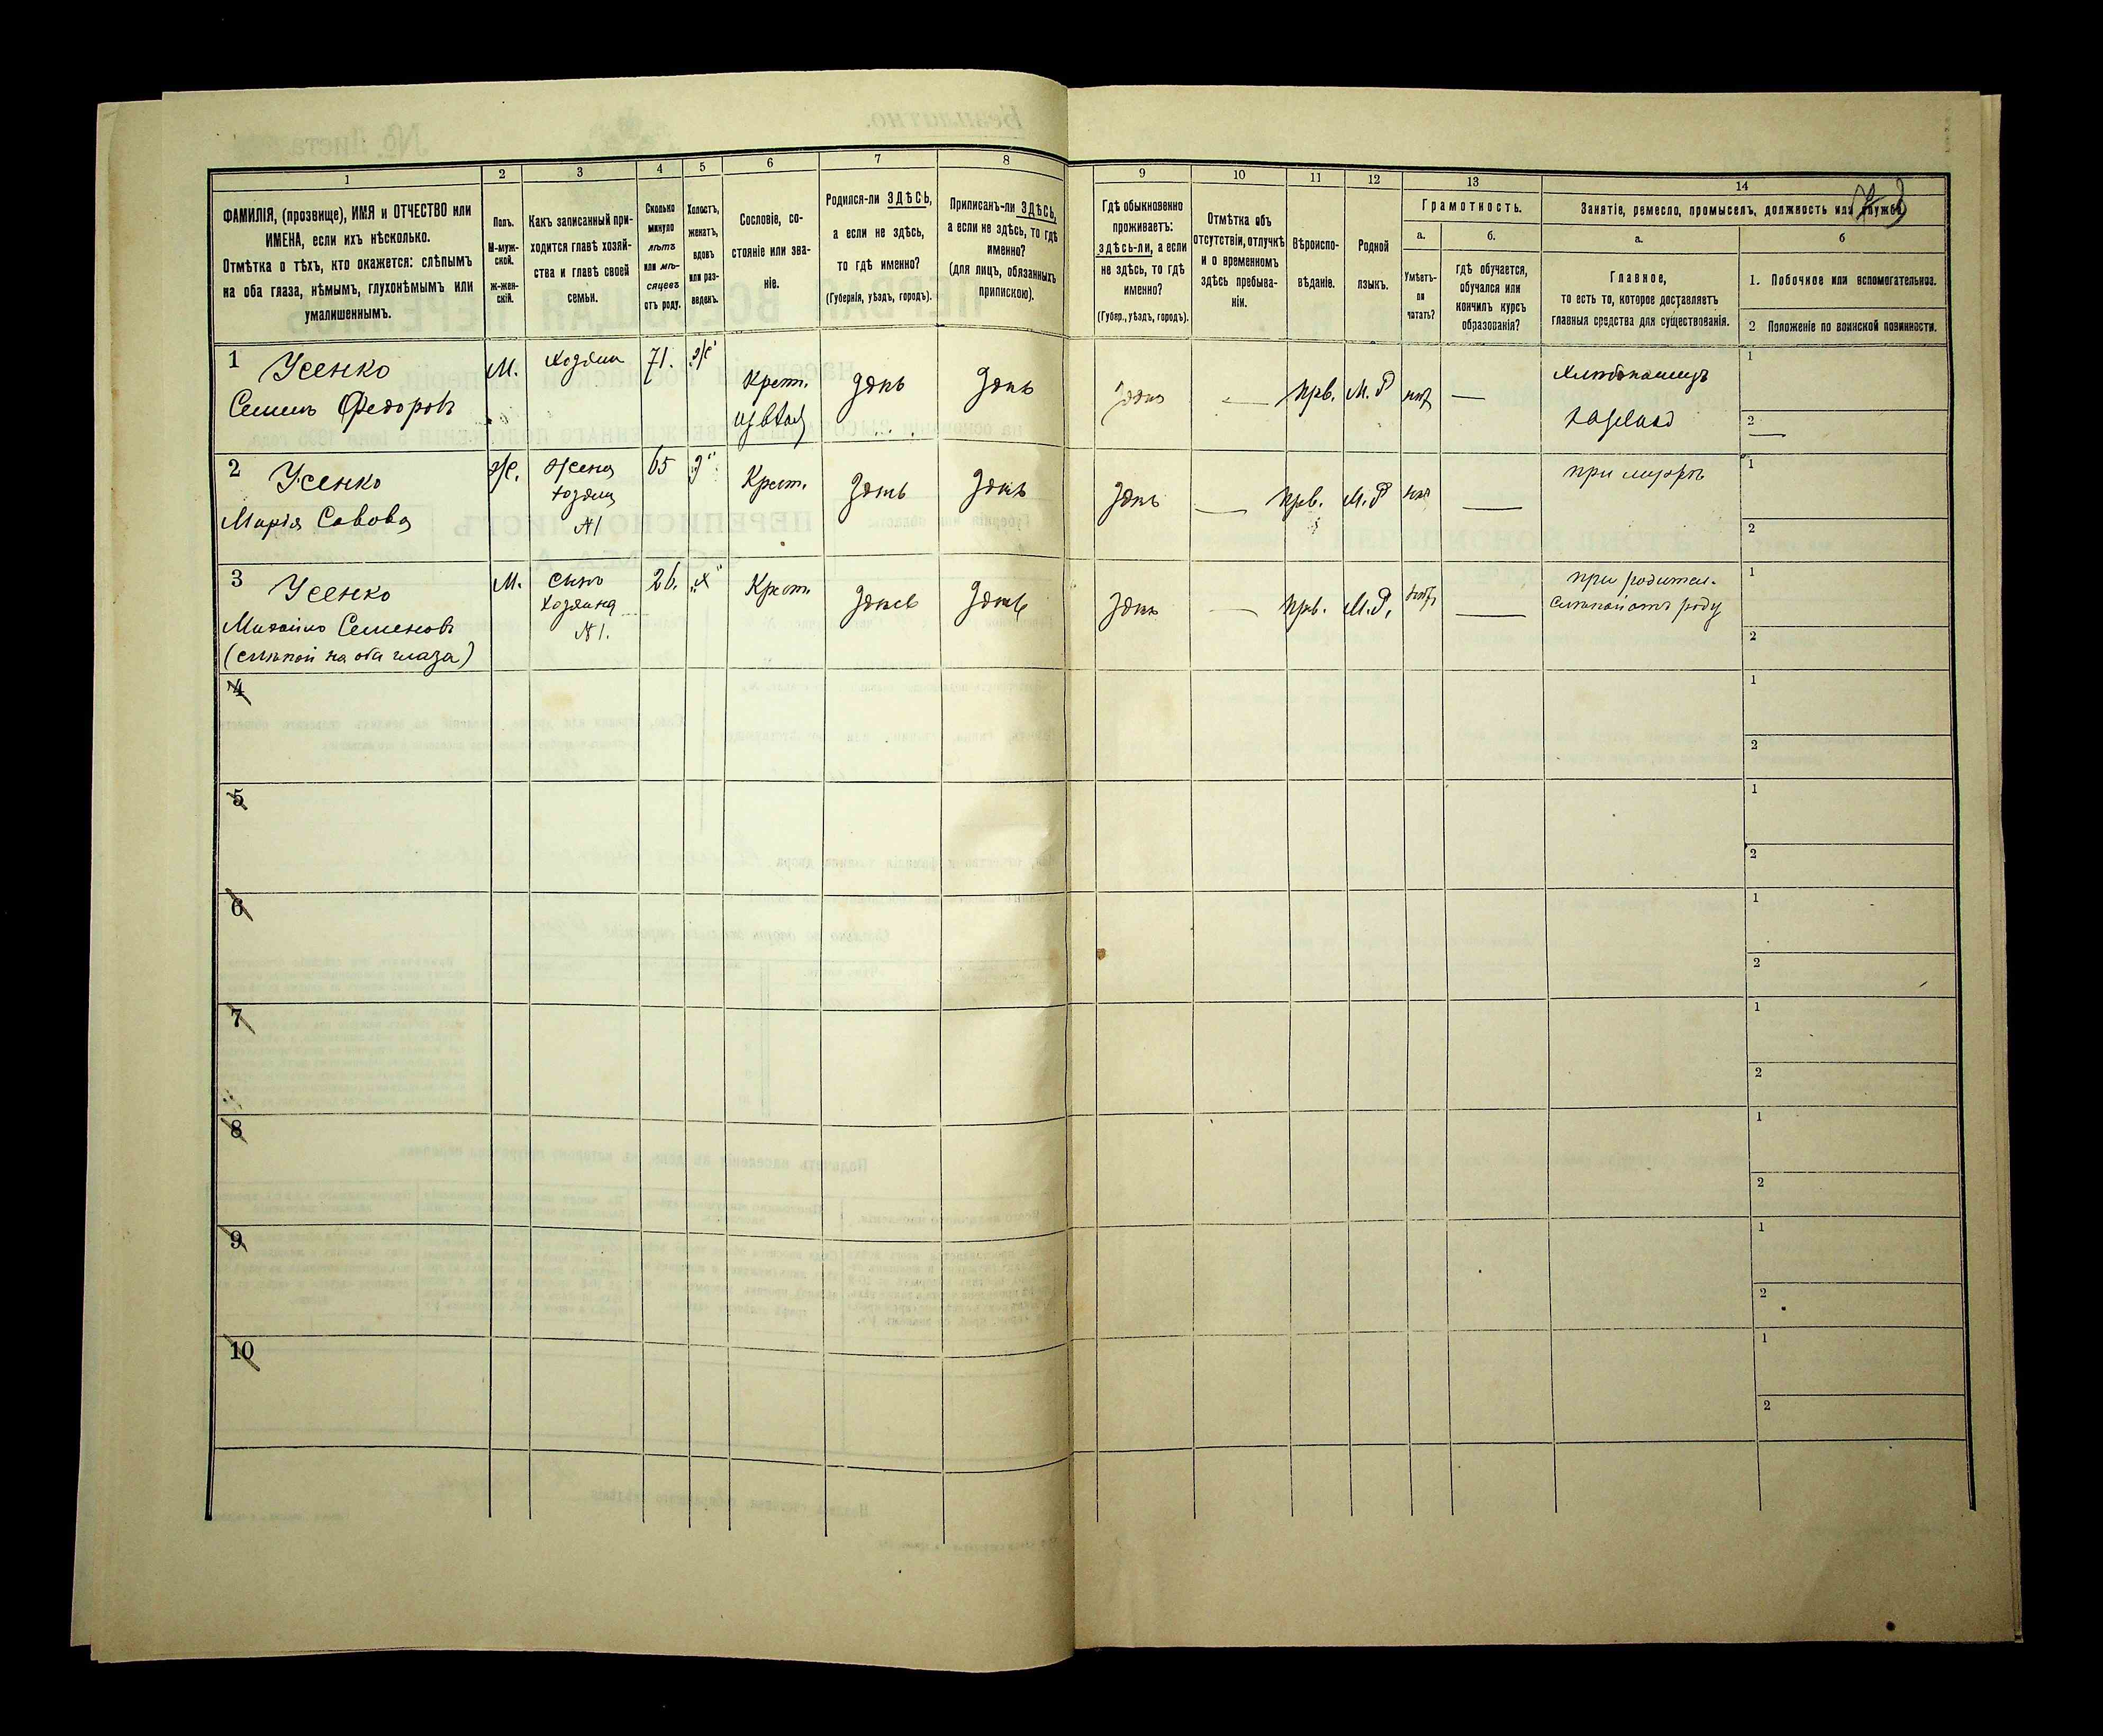 1 2 3 4 5 6 7 8 9 10 11 12 13 14
ФАМИЛІЯ, (прозвище), ИМЯ и ОТЧЕСТВО или
ИМЕНА, если ихъ нѣсколько.
Отмѣтка о тѣхъ, кто окажется: слѣпымъ
на оба глаза, нѣмымъ, глухонѣмымъ или
умалишеннымъ.
Полъ.
М-муж-
ской.
Ж-жен-
скій.
Какъ записанный при-
ходится главѣ хозяй-
ства и главѣ своей
семьи.
Сколько
минуло
лѣтъ
или мѣ-
сяцевъ
отъ роду.
Холостъ,
женатъ,
вдовъ
или раз-
веденъ.
Сословіе, со-
стояніе или зва-
ніе.
Родился-ли ЗДѢСЬ,
а если не здѣсь,
то гдѣ именно?
(Губернія, уѣздъ, городъ).
Приписанъ-ли ЗДѢСЬ,
а если не здѣсь, то гдѣ
именно?
(для лицъ, обязанныхъ
припискою).
Гдѣ обыкновенно
проживаетъ:
здѣсь-ли, а если
не здѣсь, то гдѣ
именно?
(Губер., уѣздъ, городъ).
Отмѣтка объ
отсутствіи, отлучкѣ
и о временномъ
здѣсь пребыва-
ніи.
Вѣроиспо-
вѣданіе.
Родной
языкъ.
Грамотность.
а.
Умѣетъ-
ли
читать?
б.
гдѣ обучается,
обучался или
кончилъ курсъ
образованія?
Занятіе, ремесло, промыселъ, должность или служба.
а.
Главное,
то есть то, которое доставляетъ
главныя средства для существованія.
б
1. Побочное или вспомогательное.
2 Положеніе по воинской повинности.
1 Усенко
Семенъ Федоровъ
М.
хозяинъ
71.
"ж"
Крест.
здѣсь
здѣсь
здѣсь
—
прв.
М.Р
нѣт
—
Хлѣбопашецъ
1
2 —
2 Усенко
Марія Савова
Ж.
жена
хозяина
№1
65
"з"
Крест.
здѣсь
здѣсь
здѣсь
—
прв.
М.Р
нѣт
—
при мужѣ
1
2
3 Усенко
Михайло Семеновъ
(слѣпой на оба глаза)
М.
сынъ
хозяина
№1.
26.
"х"
Крест.
здѣсь
здѣсь
здѣсь
—
прв.
М.Р.
нѣт
—
при родител.
слѣпой отъ роду
1
2
4
1
2
5
1
2
6
1
2
7
1
2
8
1
2
9
1
2
10
1
2